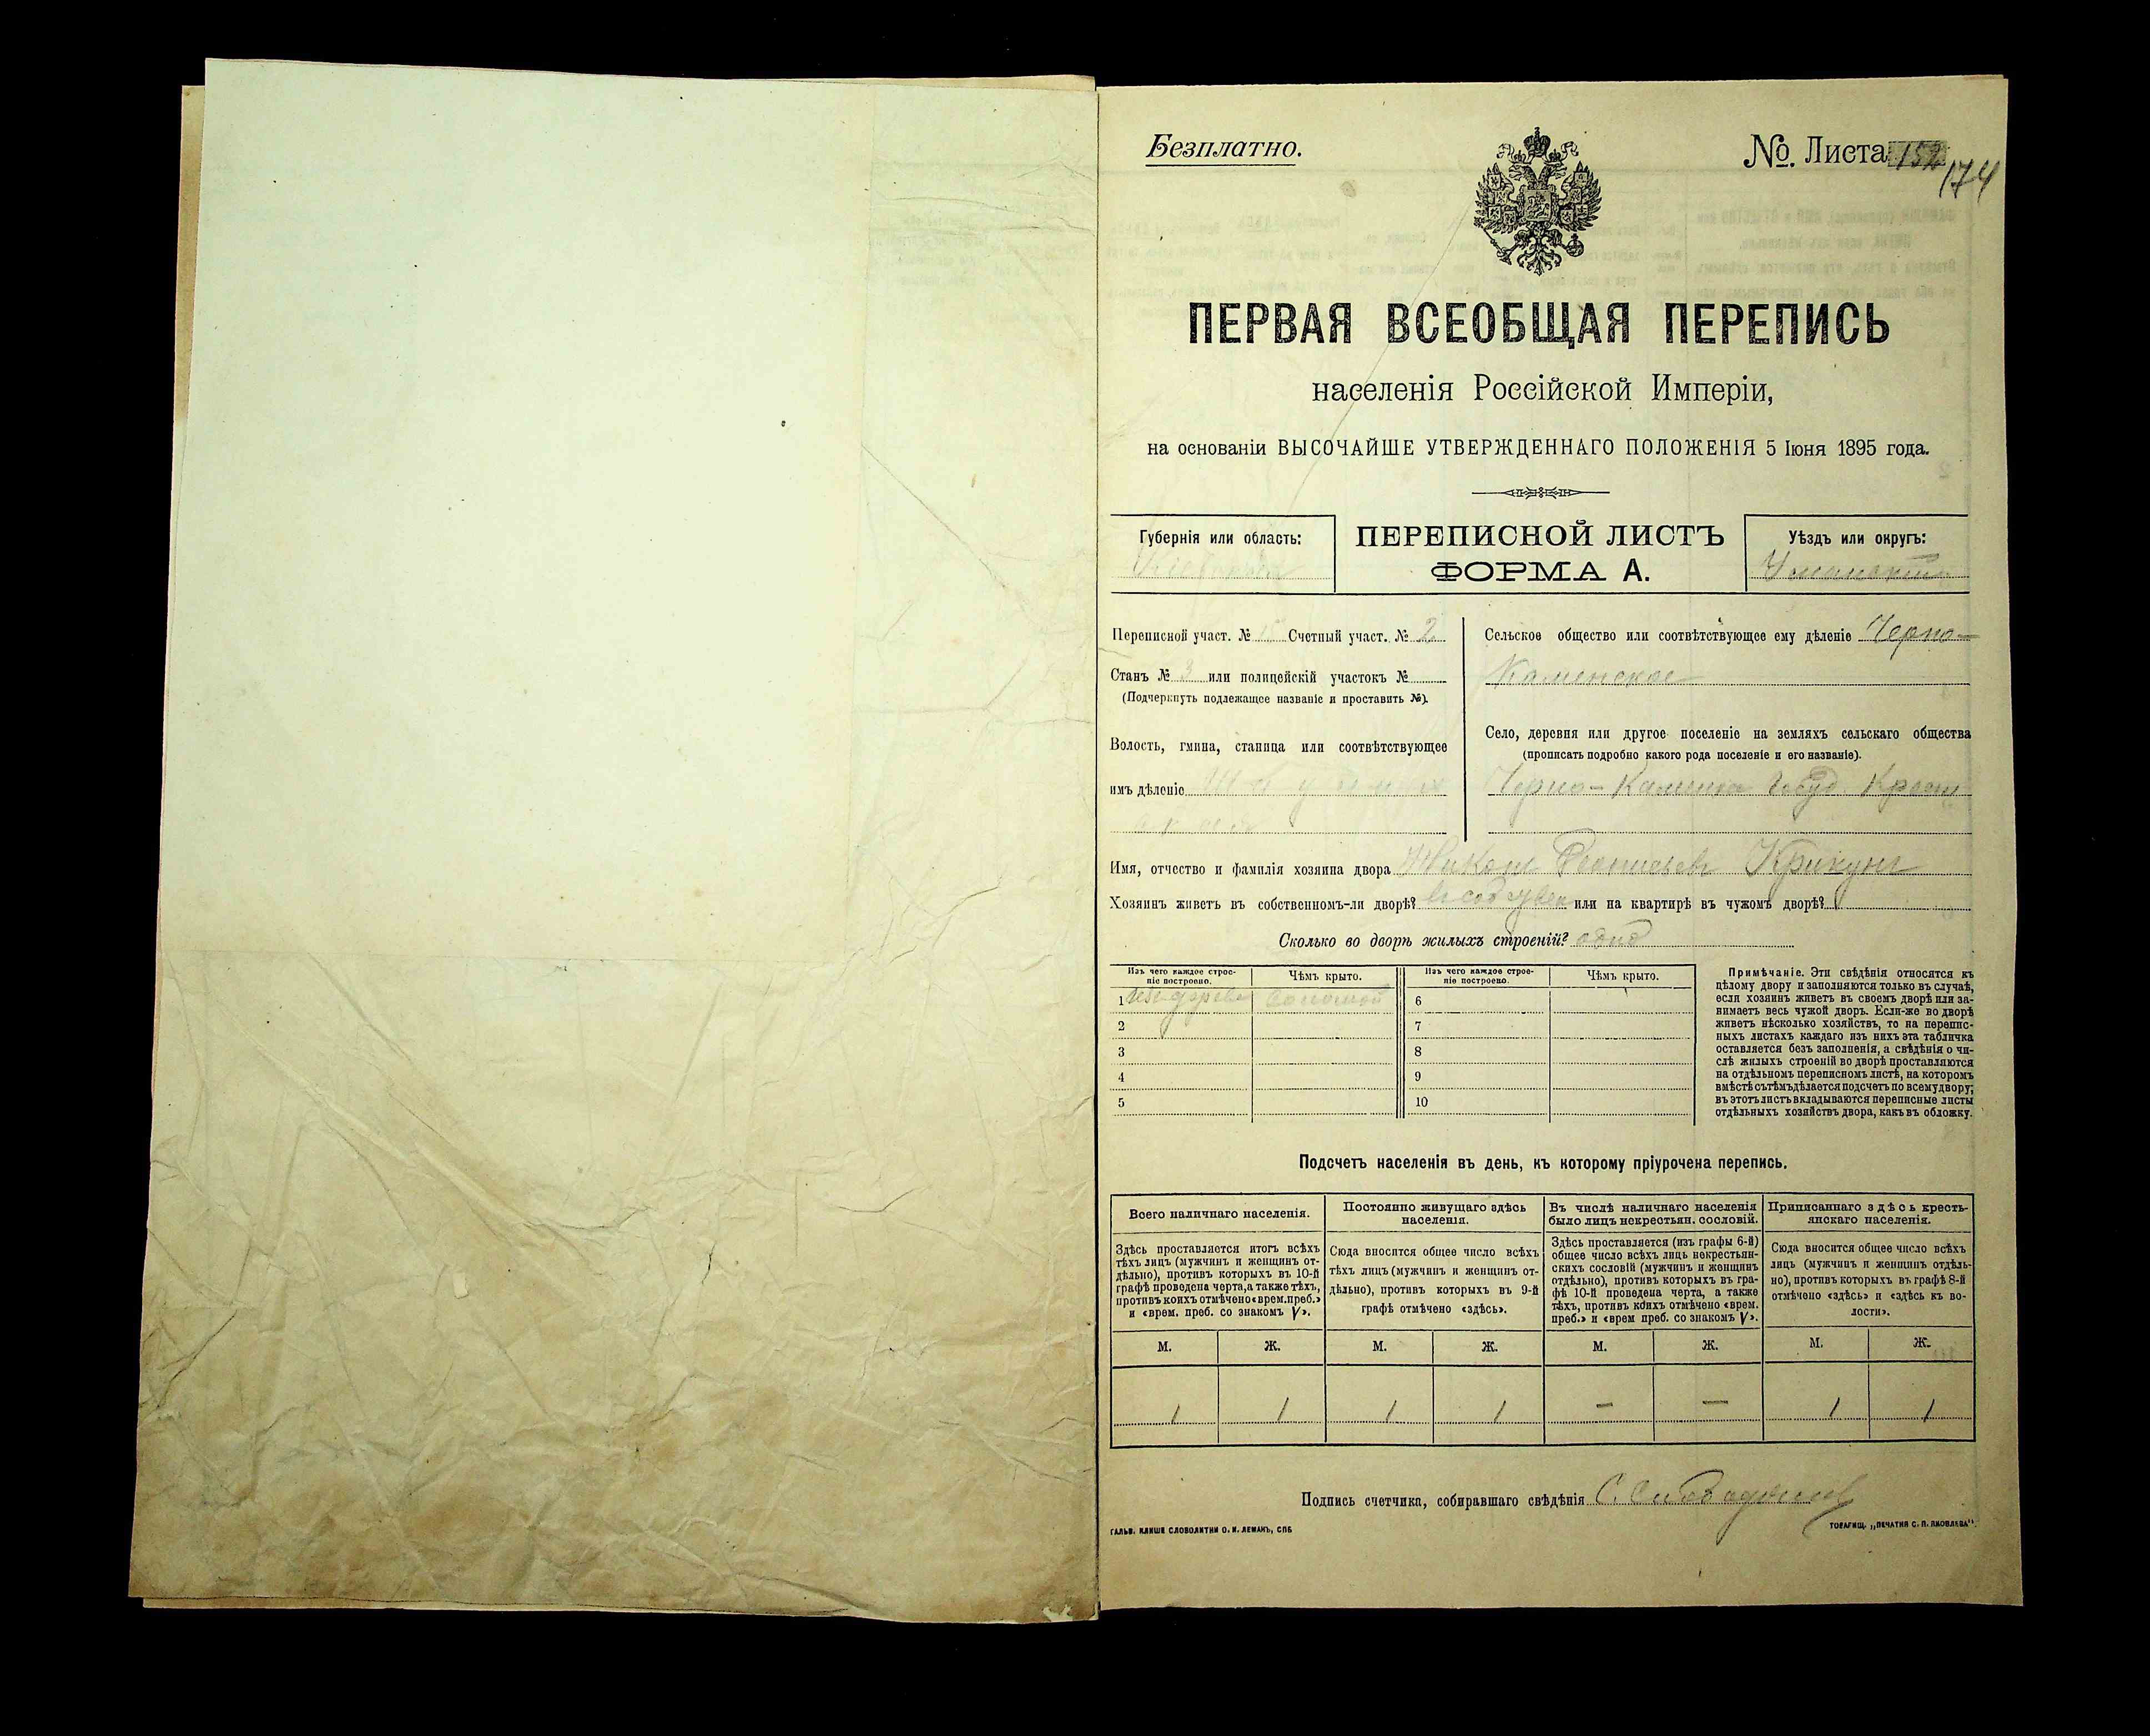 Безплатно.
№. Листа 152 174
ПЕРВАЯ ВСЕОБЩАЯ ПЕРЕПИСЬ
населенія Россійской Имперіи,
на основаніи ВЫСОЧАЙШЕ УТВЕРЖДЕННАГО ПОЛОЖЕНІЯ 5 Іюня 1895 года.
Губернія или область:
ПЕРЕПИСНОЙ ЛИСТЪ
ФОРМА А.
Уѣздъ или округъ:
Переписной участ. № Счетный участ. № 2
Станъ № 3 или полицейскій участокъ №
(Подчеркнуть подлежащее названіе и проставить №).
Волость, гмина, станица или соотвѣтствующее
имъ дѣленіе
Сельское общество или соотвѣтствующее ему дѣленіе Черно-
Каменское
Село, деревня или другое поселеніе на земляхъ сельскаго общества
(прописать подробно какого рода поселеніе и его названіе).
Черно-Каменка
Имя, отчество и фамилія хозяина двора Крикунъ
Хозяинъ живетъ въ собственномъ-ли дворѣ? или на квартирѣ въ чужомъ дворѣ?
Сколько во дворѣ жилыхъ строеній? одно
Изъ чего каждое строе-
ніе построено.
Чѣмъ крыто.
Изъ чего каждое строе-
ніе построено.
Чѣмъ крыто.
1 соломой 6
2 7
3 8
4 9
5 10
Примѣчаніе. Эти свѣдѣнія относятся къ
цѣлому двору и заполняются только въ случаѣ,
если хозяинъ живетъ въ своемъ дворѣ или за-
нимаетъ весь чужой дворъ. Если-же во дворѣ
живетъ нѣсколько хозяйствъ, то на перепис-
ныхъ листахъ каждаго изъ нихъ эта табличка
оставляется безъ заполненія, а свѣдѣнія о чи-
слѣ жилыхъ строеній во дворѣ проставляются
на отдѣльномъ переписномъ листѣ, на которомъ
вмѣстѣ съ тѣмъ дѣлается подсчетъ по всему двору;
въ этотъ листъ вкладываются переписные листы
отдѣльныхъ хозяйствъ двора, какъ въ обложку.
Подсчетъ населенія въ день, къ которому пріурочена перепись.
Всего наличнаго населенія.
Здѣсь проставляется итогъ всѣхъ
тѣхъ лицъ (мужчинъ и женщинъ от-
дѣльно), противъ которыхъ въ 10-й
графѣ проведена черта, а также тѣхъ,
противъ коихъ отмѣчено «врем. преб.»
и «врем. преб. со знакомъ V».
Постоянно живущаго здѣсь
населенія.
Сюда вносится общее число всѣхъ
тѣхъ лицъ (мужчинъ и женщинъ от-
дѣльно), противъ которыхъ въ 9-й
графѣ отмѣчено «здѣсь».
Въ числѣ наличнаго населенія
было лицъ некрестьян. сословій.
Здѣсь проставляется (изъ графы 6-й)
общее число всѣхъ лицъ некрестьян-
скихъ сословій (мужчинъ и женщинъ
отдѣльно), противъ которыхъ въ гра-
фѣ 10-й проведена черта, а также
тѣхъ, противъ коихъ отмѣчено «врем.
преб.» и «врем преб. со знакомъ V».
Приписаннаго здѣсь кресть-
янскаго населенія.
Сюда вносится общее число всѣхъ
лицъ (мужчинъ и женщинъ отдѣль-
но), противъ которыхъ въ графѣ 8-й
отмѣчено «здѣсь» и «здѣсь къ во-
лости».
М. Ж. М. Ж. М. Ж. М. Ж.
1 1 1 1 — — 1 1
Подпись счетчика, собиравшаго свѣдѣнія
ГАЛЬВ. КЛИШЕ СЛОВОЛИТНИ О. И. ЛЕМАНЪ, СПБ
ТОВАРИЩ. „ПЕЧАТНЯ С. П. ЯКОВЛЕВА"